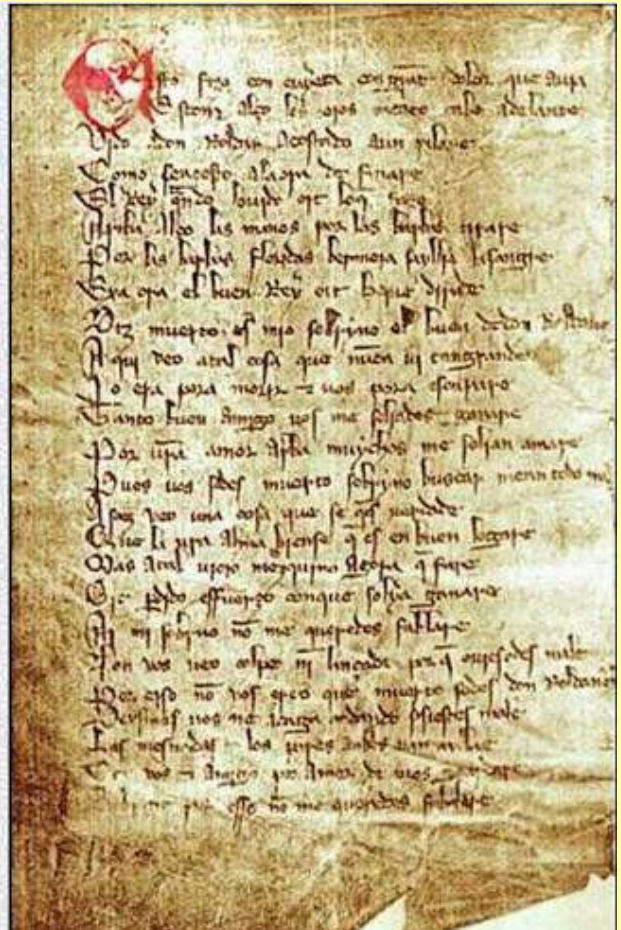 sto fizo con cuyeta con grāt dolor que auia
Estonz alço los ojos cato cabo adelante
Vido a don Roldan acostado a un pilare
Como se acosto a la ora de finare
El Rey q̄ndo lo uido oit lo q̄
Arriba alço las manos por las barbas tirare
Por las barbas floridas bermeia sayllia la sangre
Esa ora el buen Rey oit dirade
Diz muerto es mio sobrino el buen de don Roldane
Aqui veo atal cosa que nūca ui tan grande
Yo era pora morir e uos pora escapare
Tanto buen amigo uos me soliades ganare
Por ūra amor arriba muychos me solian amare
Pues uos sodes muerto sobrino buscar me an todo mal
Asaz veo una cosa que se q̄ es verdade
Que la ūra alma bien se q̄ es en buen logare
Mas atal uieio mezquino agora q̄ fare
Oit e perdido esfuerço con que solia ganare
Ai mi sobrino nō me queredes fablare
Non uos ueo colpe ni lançada por q̄ ouiesedes male
Por esso nō uos creo que muerto sodes don Roldane
uos a çaga prisiestes male
Las mesnadas e los pares ambos uan
vos e amigo por amor de uos
por esso nō me queredes fablare